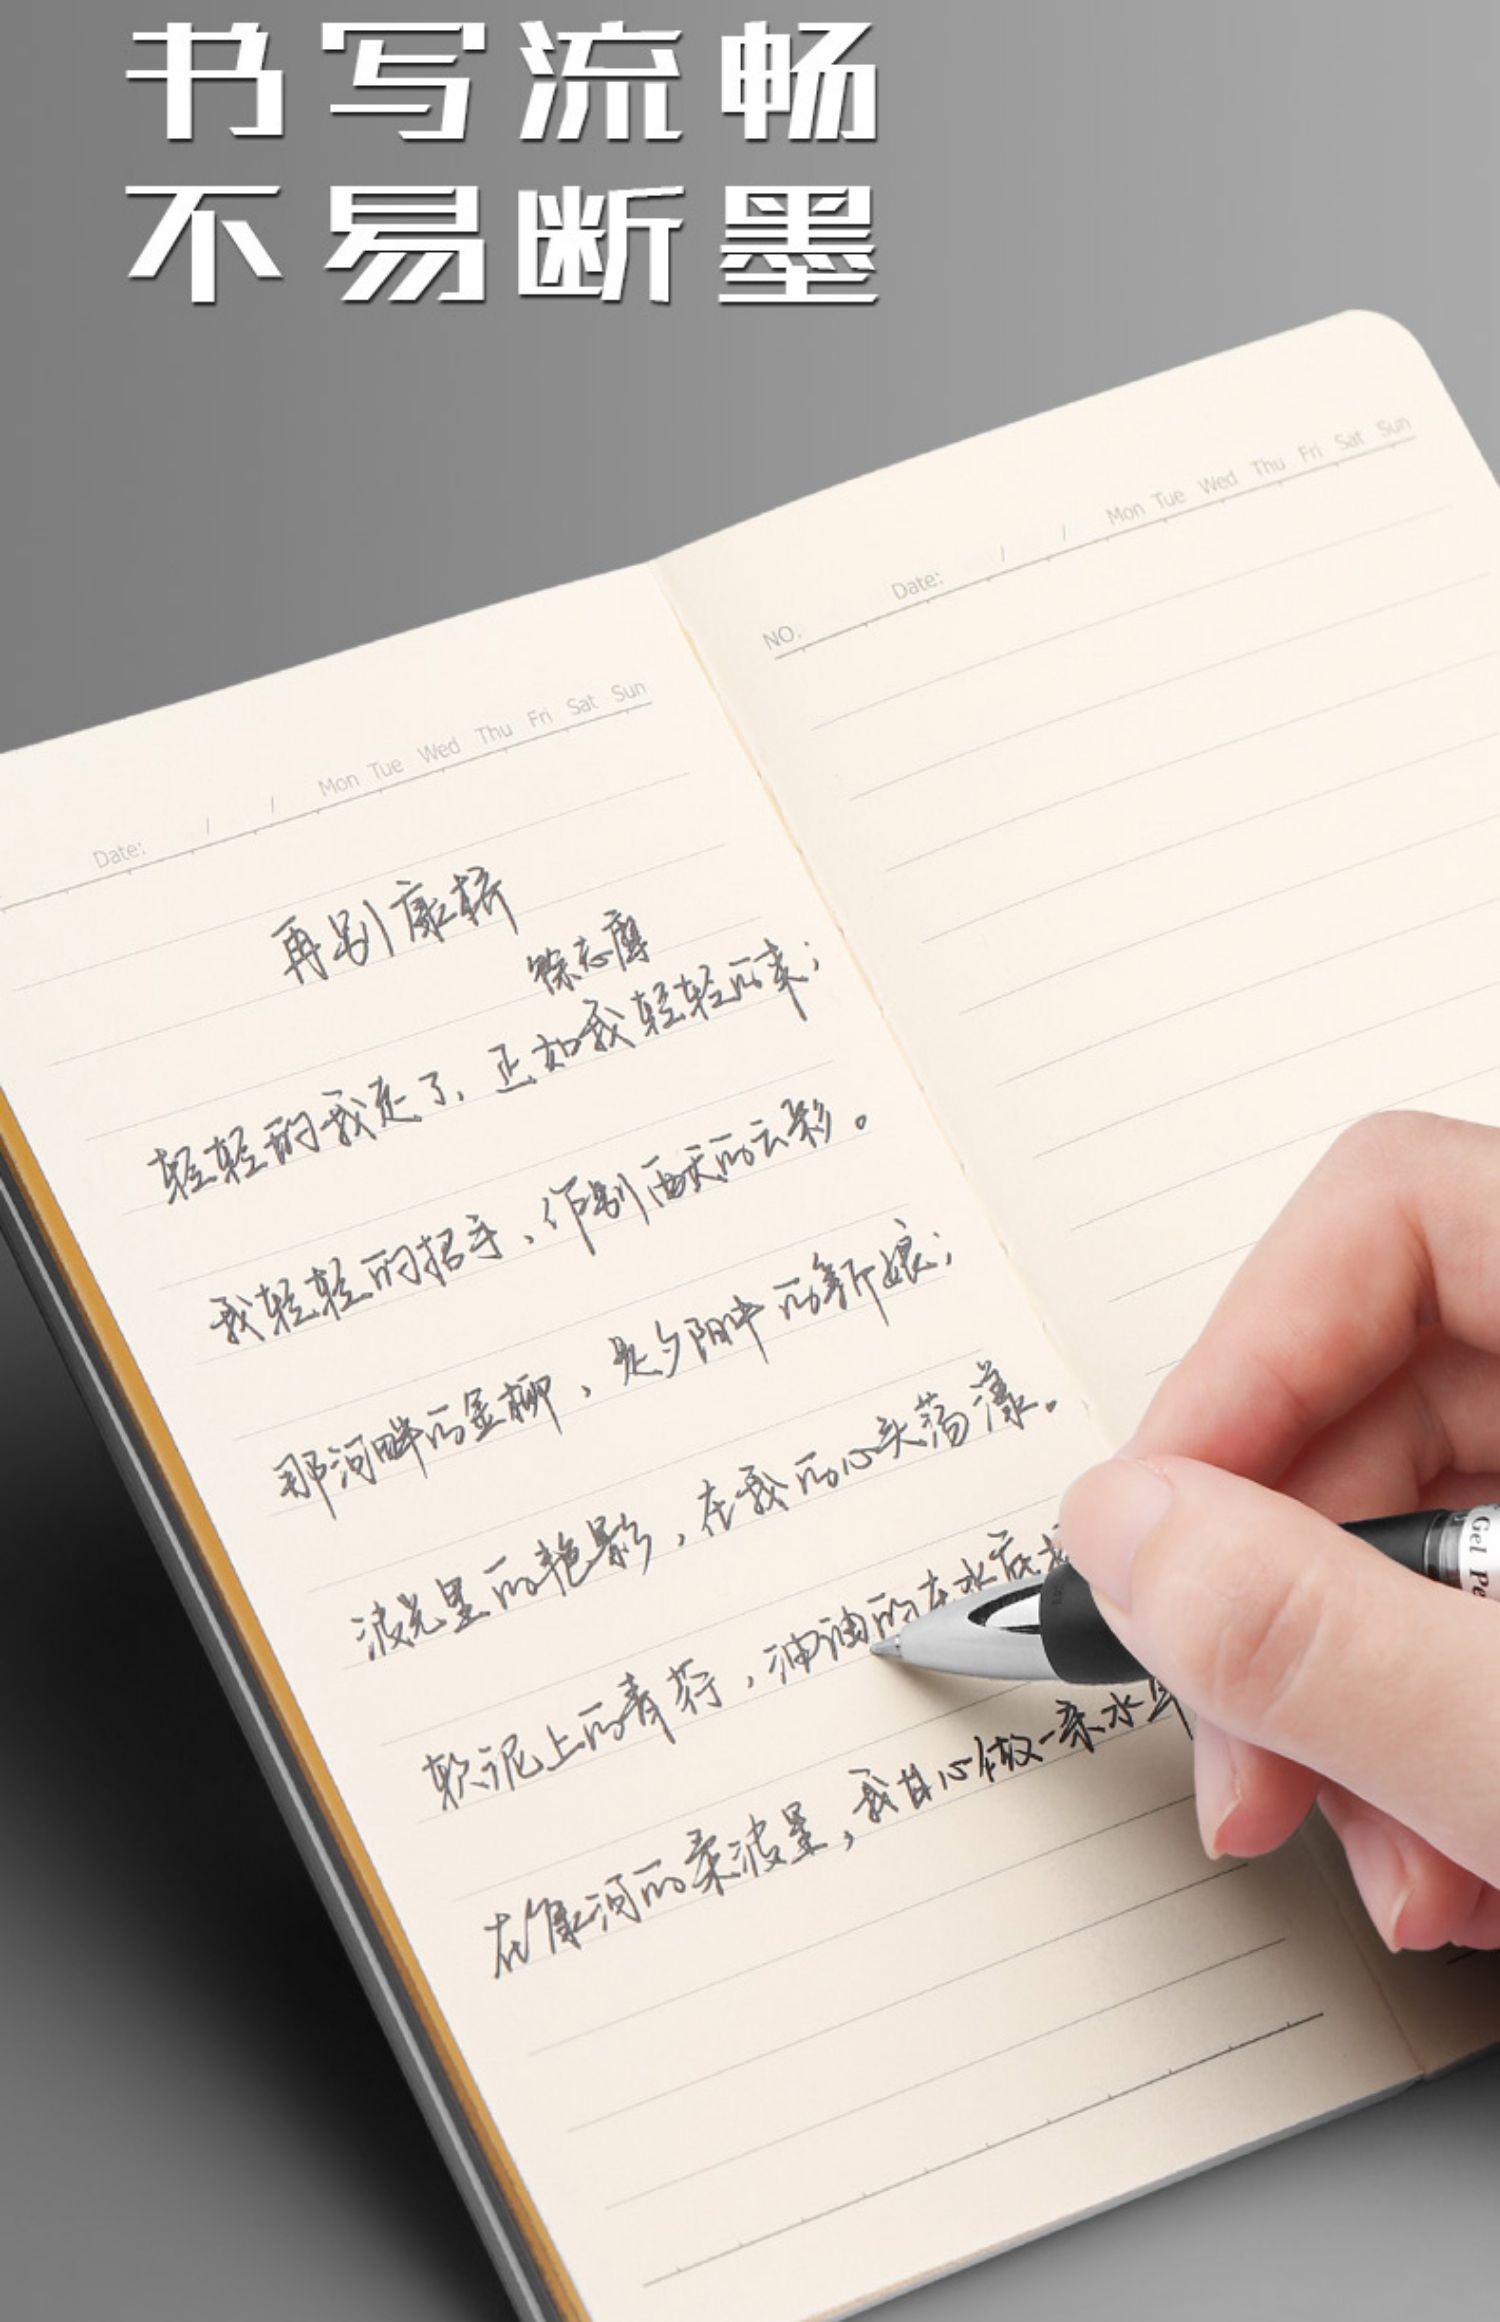 书写流畅
不易断墨
NO. Date: / / Mon Tue Wed Thu Fri Sat Sun
Date: / / Mon Tue Wed Thu Fri Sat Sun
再别康桥
徐志摩
轻轻的我走了、正如我轻轻的来;
我轻轻的招手、作别西天的云彩。
那河畔的金柳、是夕阳中的新娘;
波光里的艳影,在我的心头荡漾。
软泥上的青荇,油油的在水底招
在康河的柔波里,我甘心做一条水草
Gel Pe